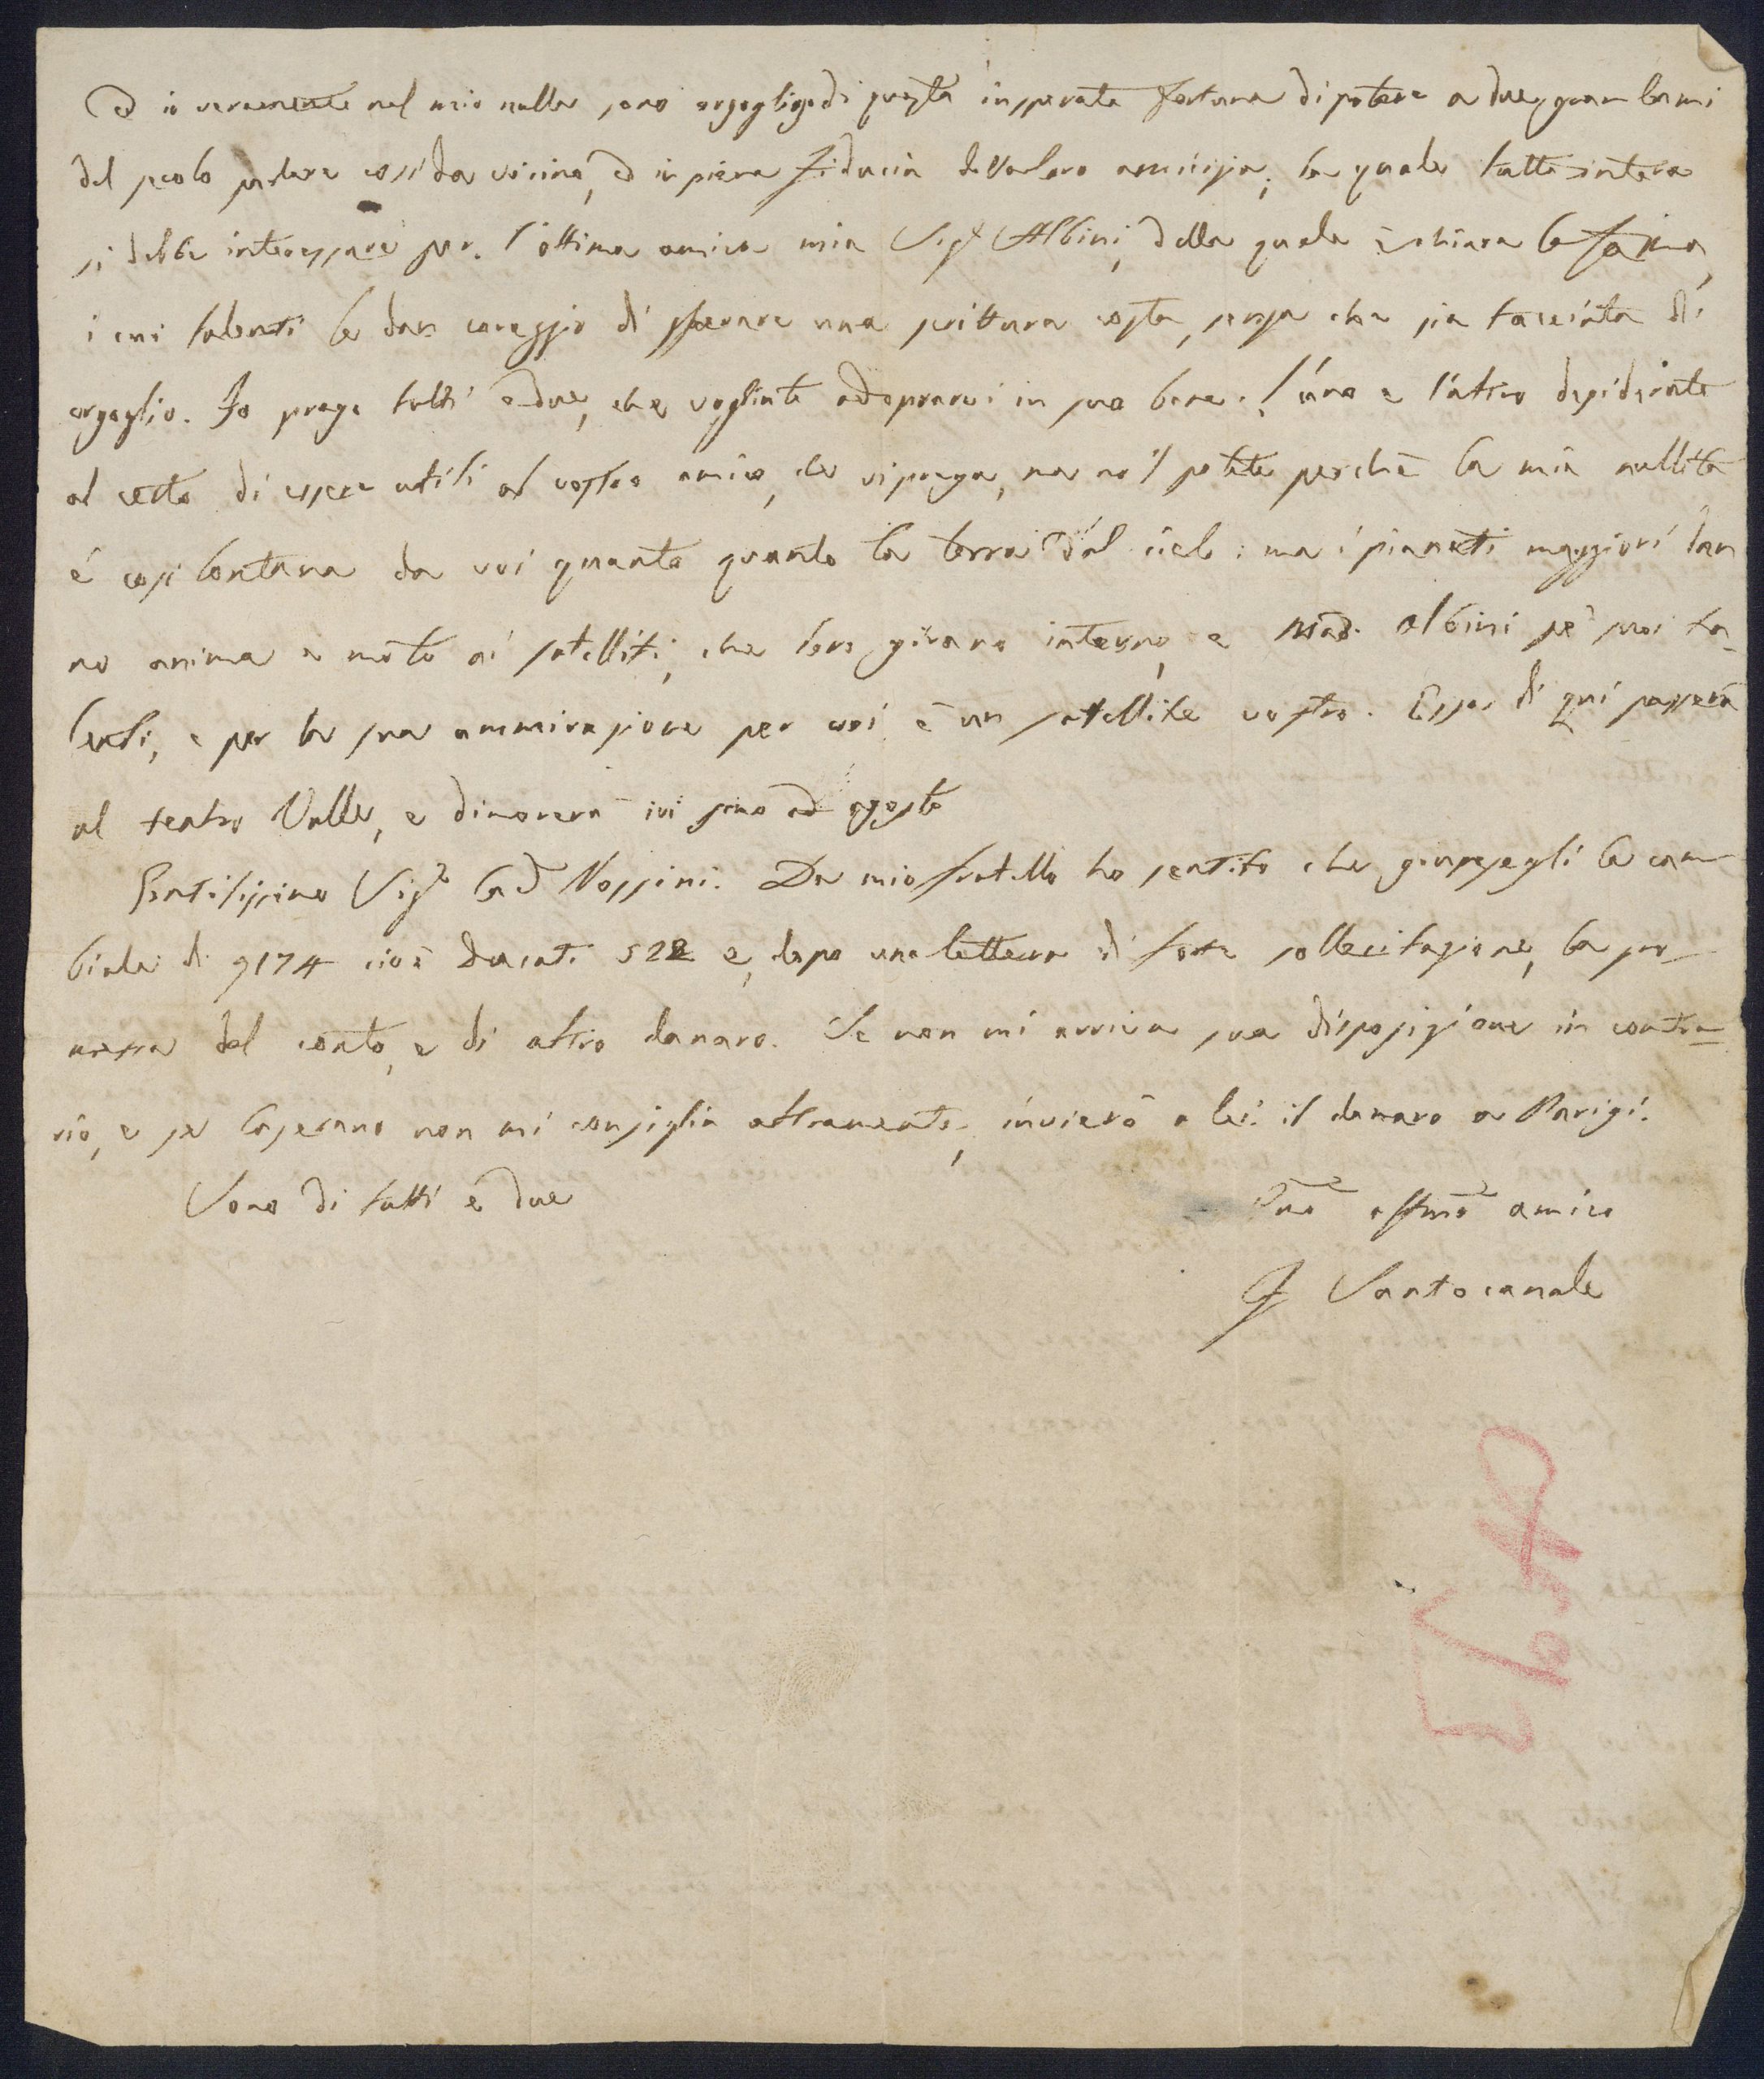 ed io veramente nel mio nulla sono orgoglioso di questa insperata fortuna di potere a due gran lumi
del secolo parlare così da vicino, ed in piena fiducia della loro amicizia, la quale tutta intera
si debbe interessare per l'ottima amica mia Sigra Albini, della quale è chiara la fama,
i cui talenti le dan coraggio di sperare una scrittura costà, senza che sia tacciata di
orgoglio. Io prego tutti e due, che vogliate adoprarvi in suo bene. L'uno e l'altro desiderate
al certo di esser utili al vostro amico, che vi prega, ma no'l potete perchè la mia nullità
é così lontana da voi quanto quanto la terra dal cielo: ma i pianeti maggiori dan
no anima e moto ai satelliti, che loro girano intorno, e Mad. Albini pe' suoi ta-
lenti, e per la sua ammirazione per voi è un satellite vostro. Essa di qui passerà
al teatro Valle, e dimorerà ivi sino ad agosto
Gentilissimo Sigr Cad Rossini. Da mio fratello ho sentito che giunsegli la cam-
biale di 174 cioè Ducati 522 e, dopo una lettera di forte sollecitazione, la pro-
messa del conto, e di altro danaro. Se non mi arriva sua disposizione in contra-
rio, e se Casesano non mi consiglia altramente, invierò a lei il danaro a Parigi.
Sono di tutti e due
Suo affmo amico
F Santocanale